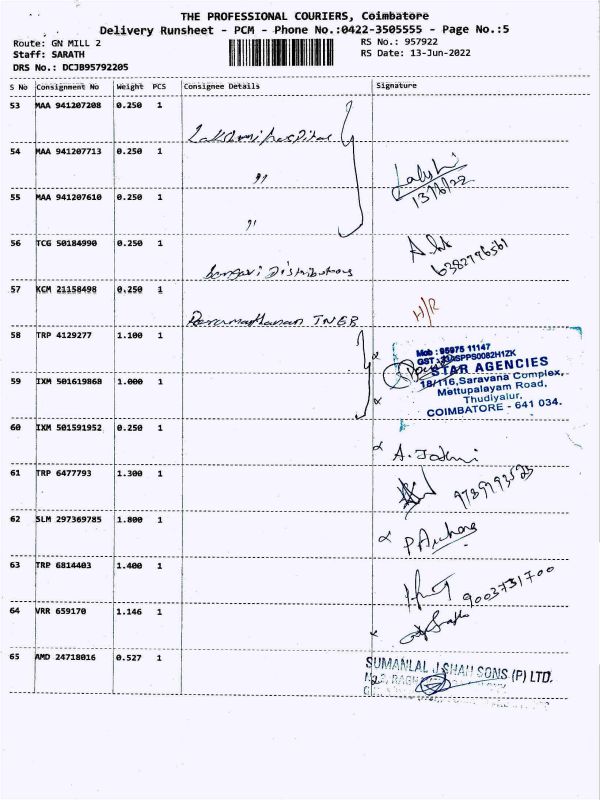 THE PROFESSIONAL COURIERS, Coimbatore
Delivery Runsheet - PCM - Phone No.:0422-3505555 - Page No.:5
Route: GN MILL 2 RS No.: 957922
Staff: SARATH RS Date: 13-Jun-2022
DRS No.: DCJB95792205
S No Consignment No Weight PCS Consignee Details Signature
53 MAA 941207208 0.250 1
Lakshmi hospital
54 MAA 941207713 0.250 1
"
13/6/22
55 MAA 941207610 0.250 1
"
56 TCG 50184990 0.250 1
6382796561
Distributors
57 KCM 21158498 0.250 1
TNEB H/R
58 TRP 4129277 1.100 1
Mob : 95975 11147
STAR AGENCIES
59 IXM 501619868 1.000 1
18/116, Saravana Complex,
Mettupalayam Road,
Thudiyalur,
COIMBATORE - 641 034.
60 IXM 501591952 0.250 1
61 TRP 6477793 1.300 1
62 SLM 297369785 1.800 1
63 TRP 6814403 1.400 1
9003731700
64 VRR 659170 1.146 1
65 AMD 24718016 0.527 1
SUMANLAL J SHAH SONS (P) LTD.